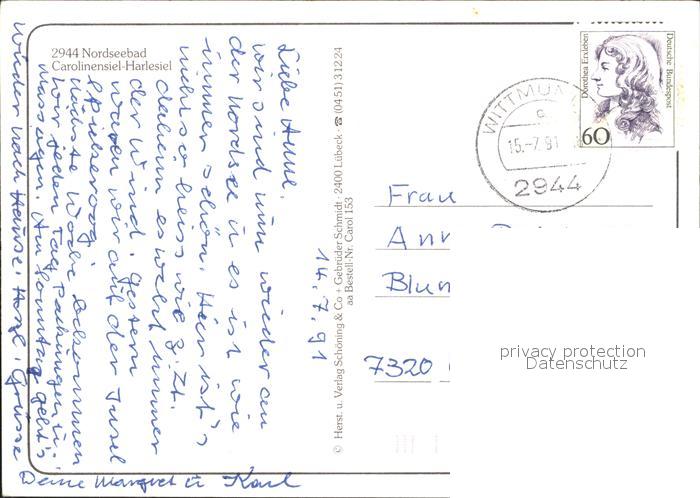 2944 Nordseebad
Carolinensiel-Harlesiel
14.7.91
Liebe Anne.
wir sind nun wieder an
der Nordsee u es ist wie
immer schön. Hier ist's
nicht so heiss wie z. Zt.
daheim es weht immer
der Wind. Gestern
waren wir auf der Insel
Spiekeroog!
nächste Woche bekommen
wir jeden Tag Packungen u.
Massagen. Am Sonntag geht's
wieder nach Hause. Herzl. Grüsse
Deine Margret u Karl
© Herst. u. Verlag Schöning & Co + Gebrüder Schmidt · 2400 Lübeck · ☎ (04 51) 3 12 24
aa Bestell-Nr. Carol 153
Dorothea Erxleben
Deutsche Bundespost
60
WITTMUN
a
15.-7.91
2944
Frau
Ann
Blum
7320
privacy protection
Datenschutz